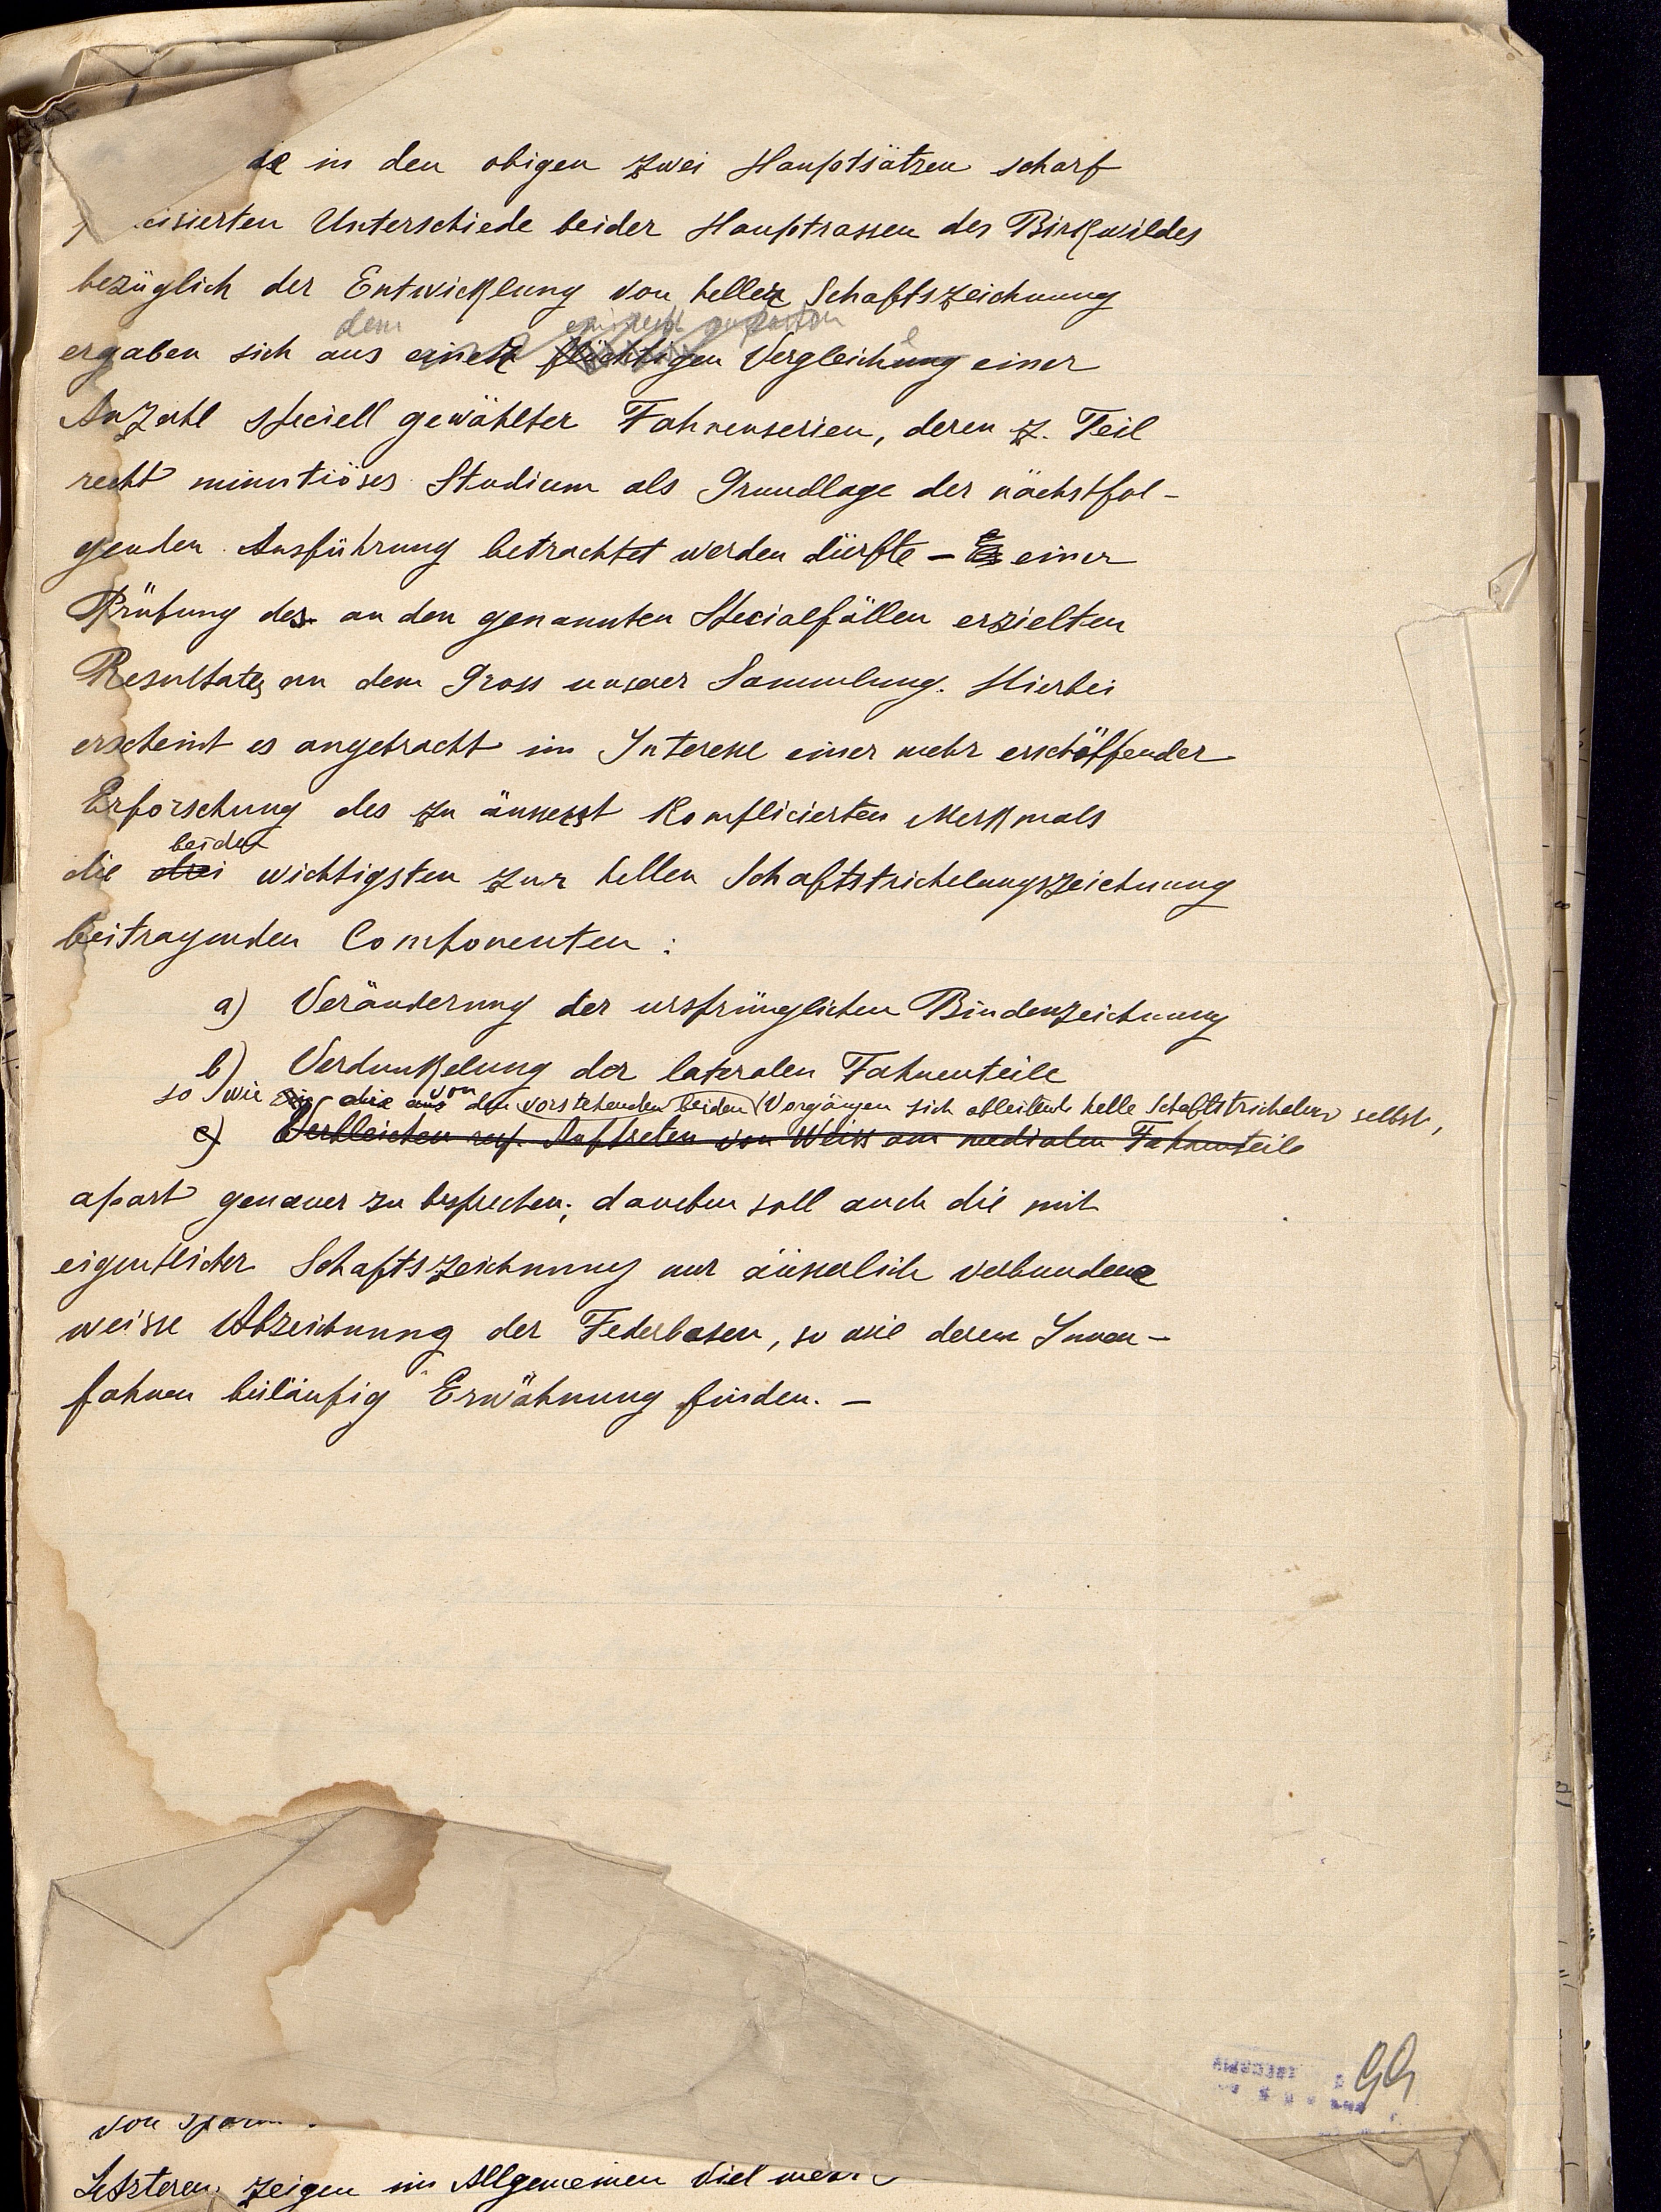 de in den obigen zwei Hauptsätzen scharf
cisierten Unterschiede beider Hauptrassen des Birkwildes
bezüglich der Entwicklung von heller Schaftszeichnung
dem
ergaben sich aus einer flüchtigen Vergleichung einer
Anzahl speciell gewählter Fahnenserien, deren z. Teil
recht minutiöses Studium als Grundlage der nächstfol-
genden Ausführung betrachtet werden dürfte – einer
Prüfung des an den genannten Specialfällen erzielten
Resultates an dem Gross unserer Sammlung. Hierbei
erscheint es angebracht im Interesse einer mehr erschöpfender
Erforschung des zu äusserst komplicierten Merkmals
beiden
die drei wichtigsten zur hellen Schaftstrichelungszeichnung
beitragenden Componenten :
a) Veränderung der ursprünglichen Bindenzeichnung
b) Verdunkelung der lateralen Fahnenteile
so wie die aus von den vorstehenden beiden Vorgängen sich ableitende helle Schaftstrichelung selbst,
c) Verbleichen resp. Auftreten von Weiss am medialen Fahnenteile
apart genauer zu besprechen; daneben soll auch die mit
eigentlicher Schaftszeichnung nur äusserlich verbundene
weisse Abzeichnung der Federbasen, so wie deren Innen-
fahnen beiläufig Erwähnung finden. –
von
Letzteren zeigen im Allgemeinen viel mehr